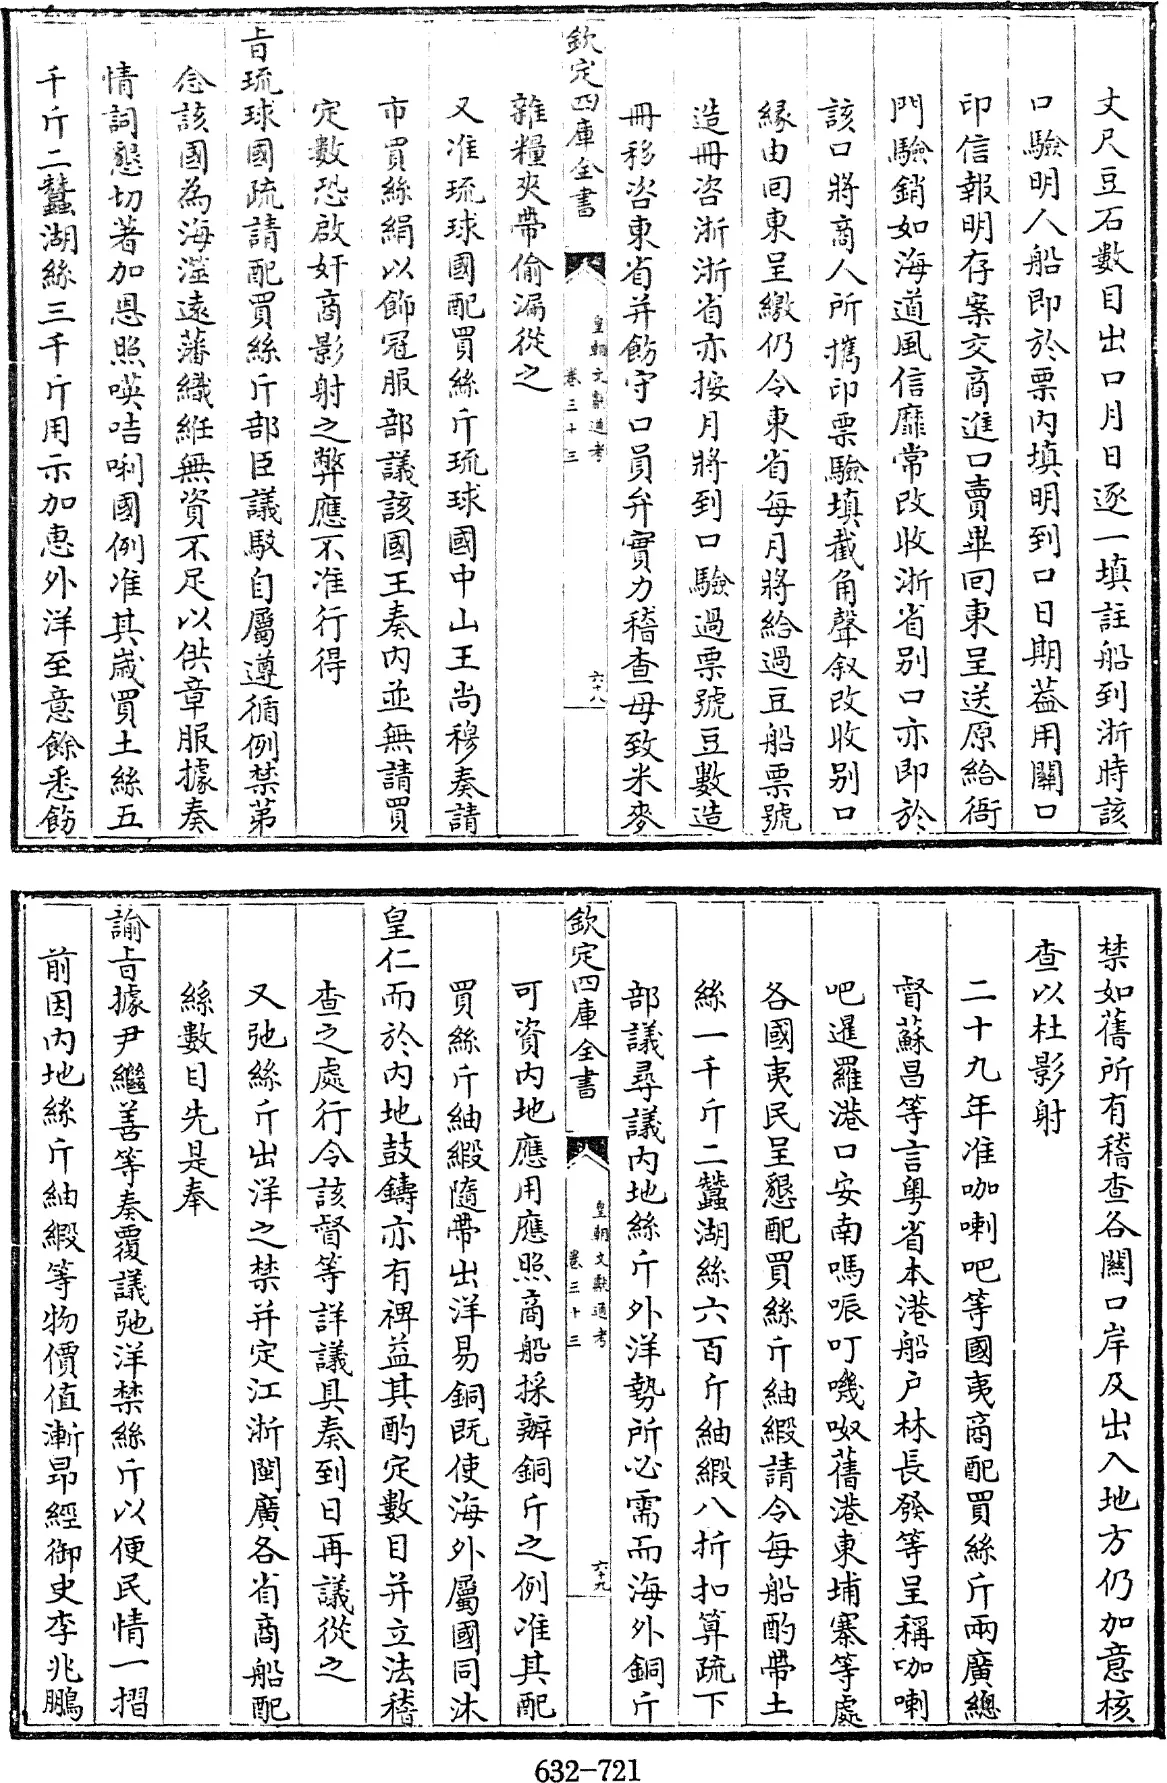 丈尺豆石數目出口月日逐一填註船到浙時該
口驗明人船即於票内填明到口日期葢用關口
印信報明存案交商進口賣畢回東呈送原給衙
門驗銷如海道風信靡常改收浙省别口亦即於
該口將商人所攜印票驗填截角聲叙改收别口
縁由回東呈繳仍令東省每月將給過豆船票號
造冊咨浙浙省亦按月將到口驗過票號豆數造
冊移咨東省并飭守口員弁實力稽查毋致米麥
欽定四庫全書
皇朝文獻通考
卷三十三
六十八
雜糧夾帶偷漏從之
又准琉球國配買絲斤琉球國中山王尚穆奏請
市買絲絹以飾冠服部議該國王奏内並無請買
定數恐啟奸商影射之弊應不准行得
旨琉球國疏請配買絲斤部臣議駁自屬遵循例禁第
念該國為海濱遠藩織絍無資不足以供章服據奏
情詞懇切著加恩照㖫咭唎國例准其歲買土絲五
千斤二蠶湖絲三千斤用示加惠外洋至意餘悉飭
禁如舊所有稽查各關口岸及出入地方仍加意核
查以杜影射
二十九年准咖喇吧等國夷商配買絲斤兩廣總
督蘇昌等言粤省本港船户林長發等呈稱咖喇
吧暹羅港口安南嗎㖠叮嘰㕭舊港東埔寨等處
各國夷民呈懇配買絲斤紬緞請令每船酌帶土
絲一千斤二蠶湖絲六百斤紬緞八折扣算疏下
部議尋議内地絲斤外洋勢所必需而海外銅斤
欽定四庫全書
皇朝文獻通考
卷三十三
六十九
可資内地應用應照商船採辦銅斤之例准其配
買絲斤紬緞隨帶出洋易銅既使海外屬國同沐
皇仁而於内地鼓鑄亦有裨益其酌定數目并立法稽
查之處行令該督等詳議具奏到日再議從之
又弛絲斤出洋之禁并定江浙閩廣各省商船配
絲數目先是奉
諭旨據尹繼善等奏覆議弛洋禁絲斤以便民情一摺
前因内地絲斤紬緞等物價值漸昂經御史李兆鵬
632-721